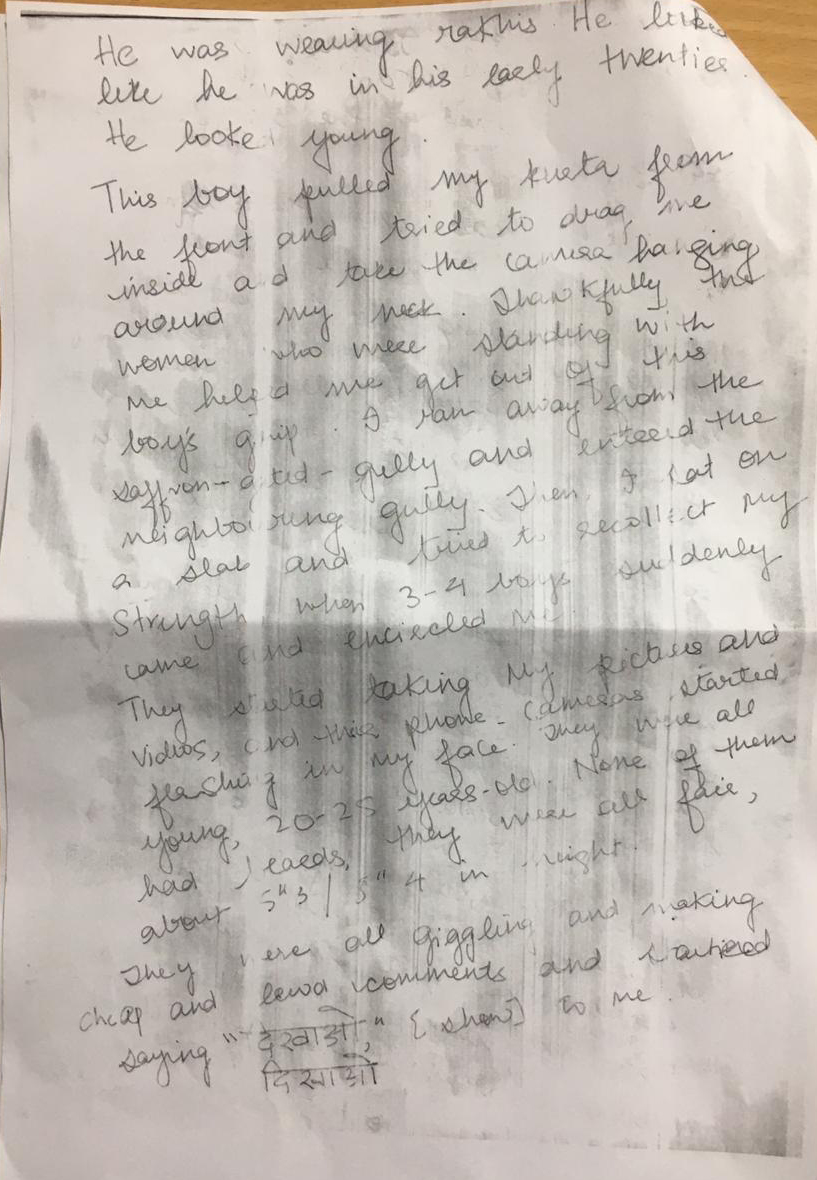 He was wearing rakhis. He looked
like he was in his early twenties.
He looke young.
This boy pulled my kurta from
the front and tried to drag me
inside and take the camera hanging
around my neck. Thankfully the
women who were standing with
me helped me get out of this
boy's grip. I ran away from the
saffron-gated-gully and entered the
neighbouring gully. Then, I sat on
a slab and tried to recollect my
strength when 3-4 boys suddenly
came and encircled me.
They started taking my pictures and
videos, and their phone-cameras started
flashing in my face. They were all
young, 20-25 years-old. None of them
had beards, they were all fair,
about 5"3/5"4 in height.
They were all giggling and making
cheap and lewd comments and started
saying "देखाओ," [show] to me.
दिखाओ